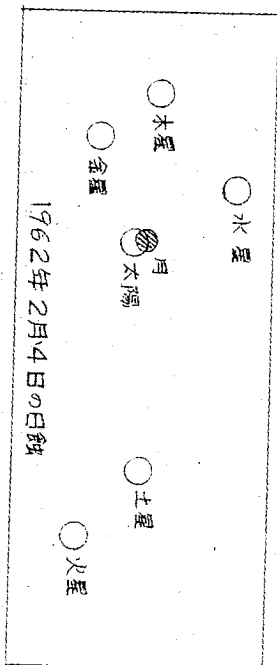 水星
木星
金星
月
太陽
土星
火星
1962年2月4日の日蝕